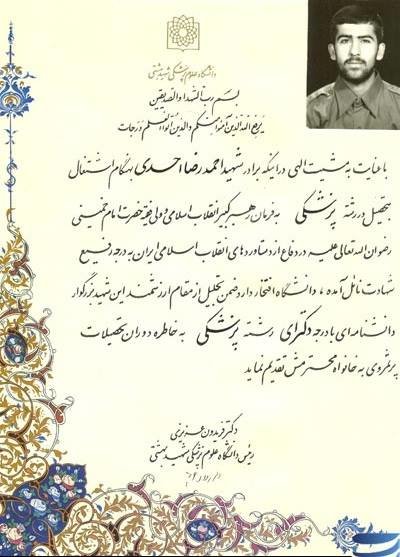 دانشگاه علوم پزشکی شهید بهشتی
بسم رب الشهداء والصدیقین
یرفع الله الذین آمنوا منکم والذین اوتوا العلم درجات
با عنایت به مشیت الهی در اینکه برادر شهید احمدرضا احدی بهنگام اشتغال
بتحصیل در رشته پزشکی به فرمان رهبر کبیر انقلاب اسلامی و ولی فقیه حضرت امام خمینی
رضوان الله تعالی علیه در دفاع از دستاوردهای انقلاب اسلامی ایران به درجه رفیع
شهادت نائل آمده ، دانشگاه افتخار دارد ضمن تجلیل از مقام ارزشمند این شهید بزرگوار
دانشنامه ای با درجه دکترای رشته پزشکی به خاطره دوران تحصیلات
پرثمروی به خانواده محترمش تقدیم نماید
دکتر فریدون عزیزی
رئیس دانشگاه علوم پزشکی شهید بهشتی